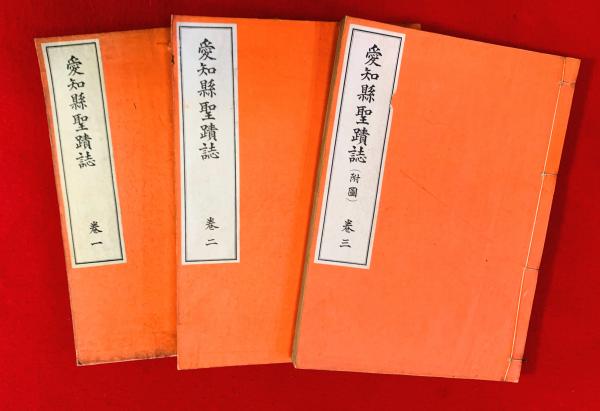 愛知縣聖蹟誌
卷一
愛知縣聖蹟誌
卷二
愛知縣聖蹟誌(附圖)
卷三